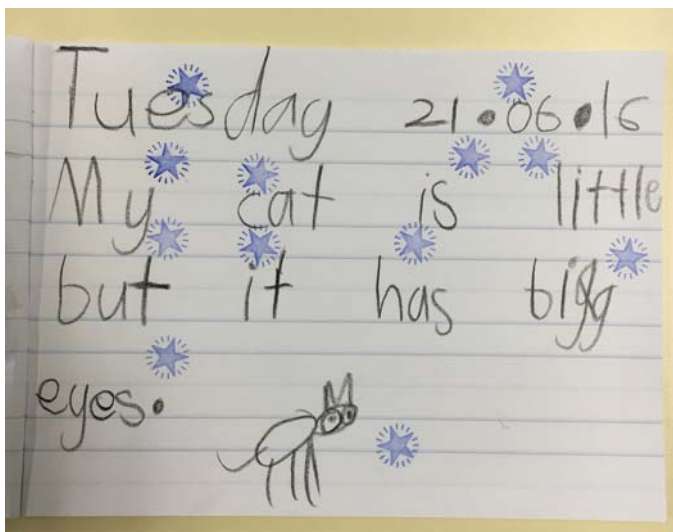 Tuesday 21.06.16
My cat is little
but it has bigg
eyes.